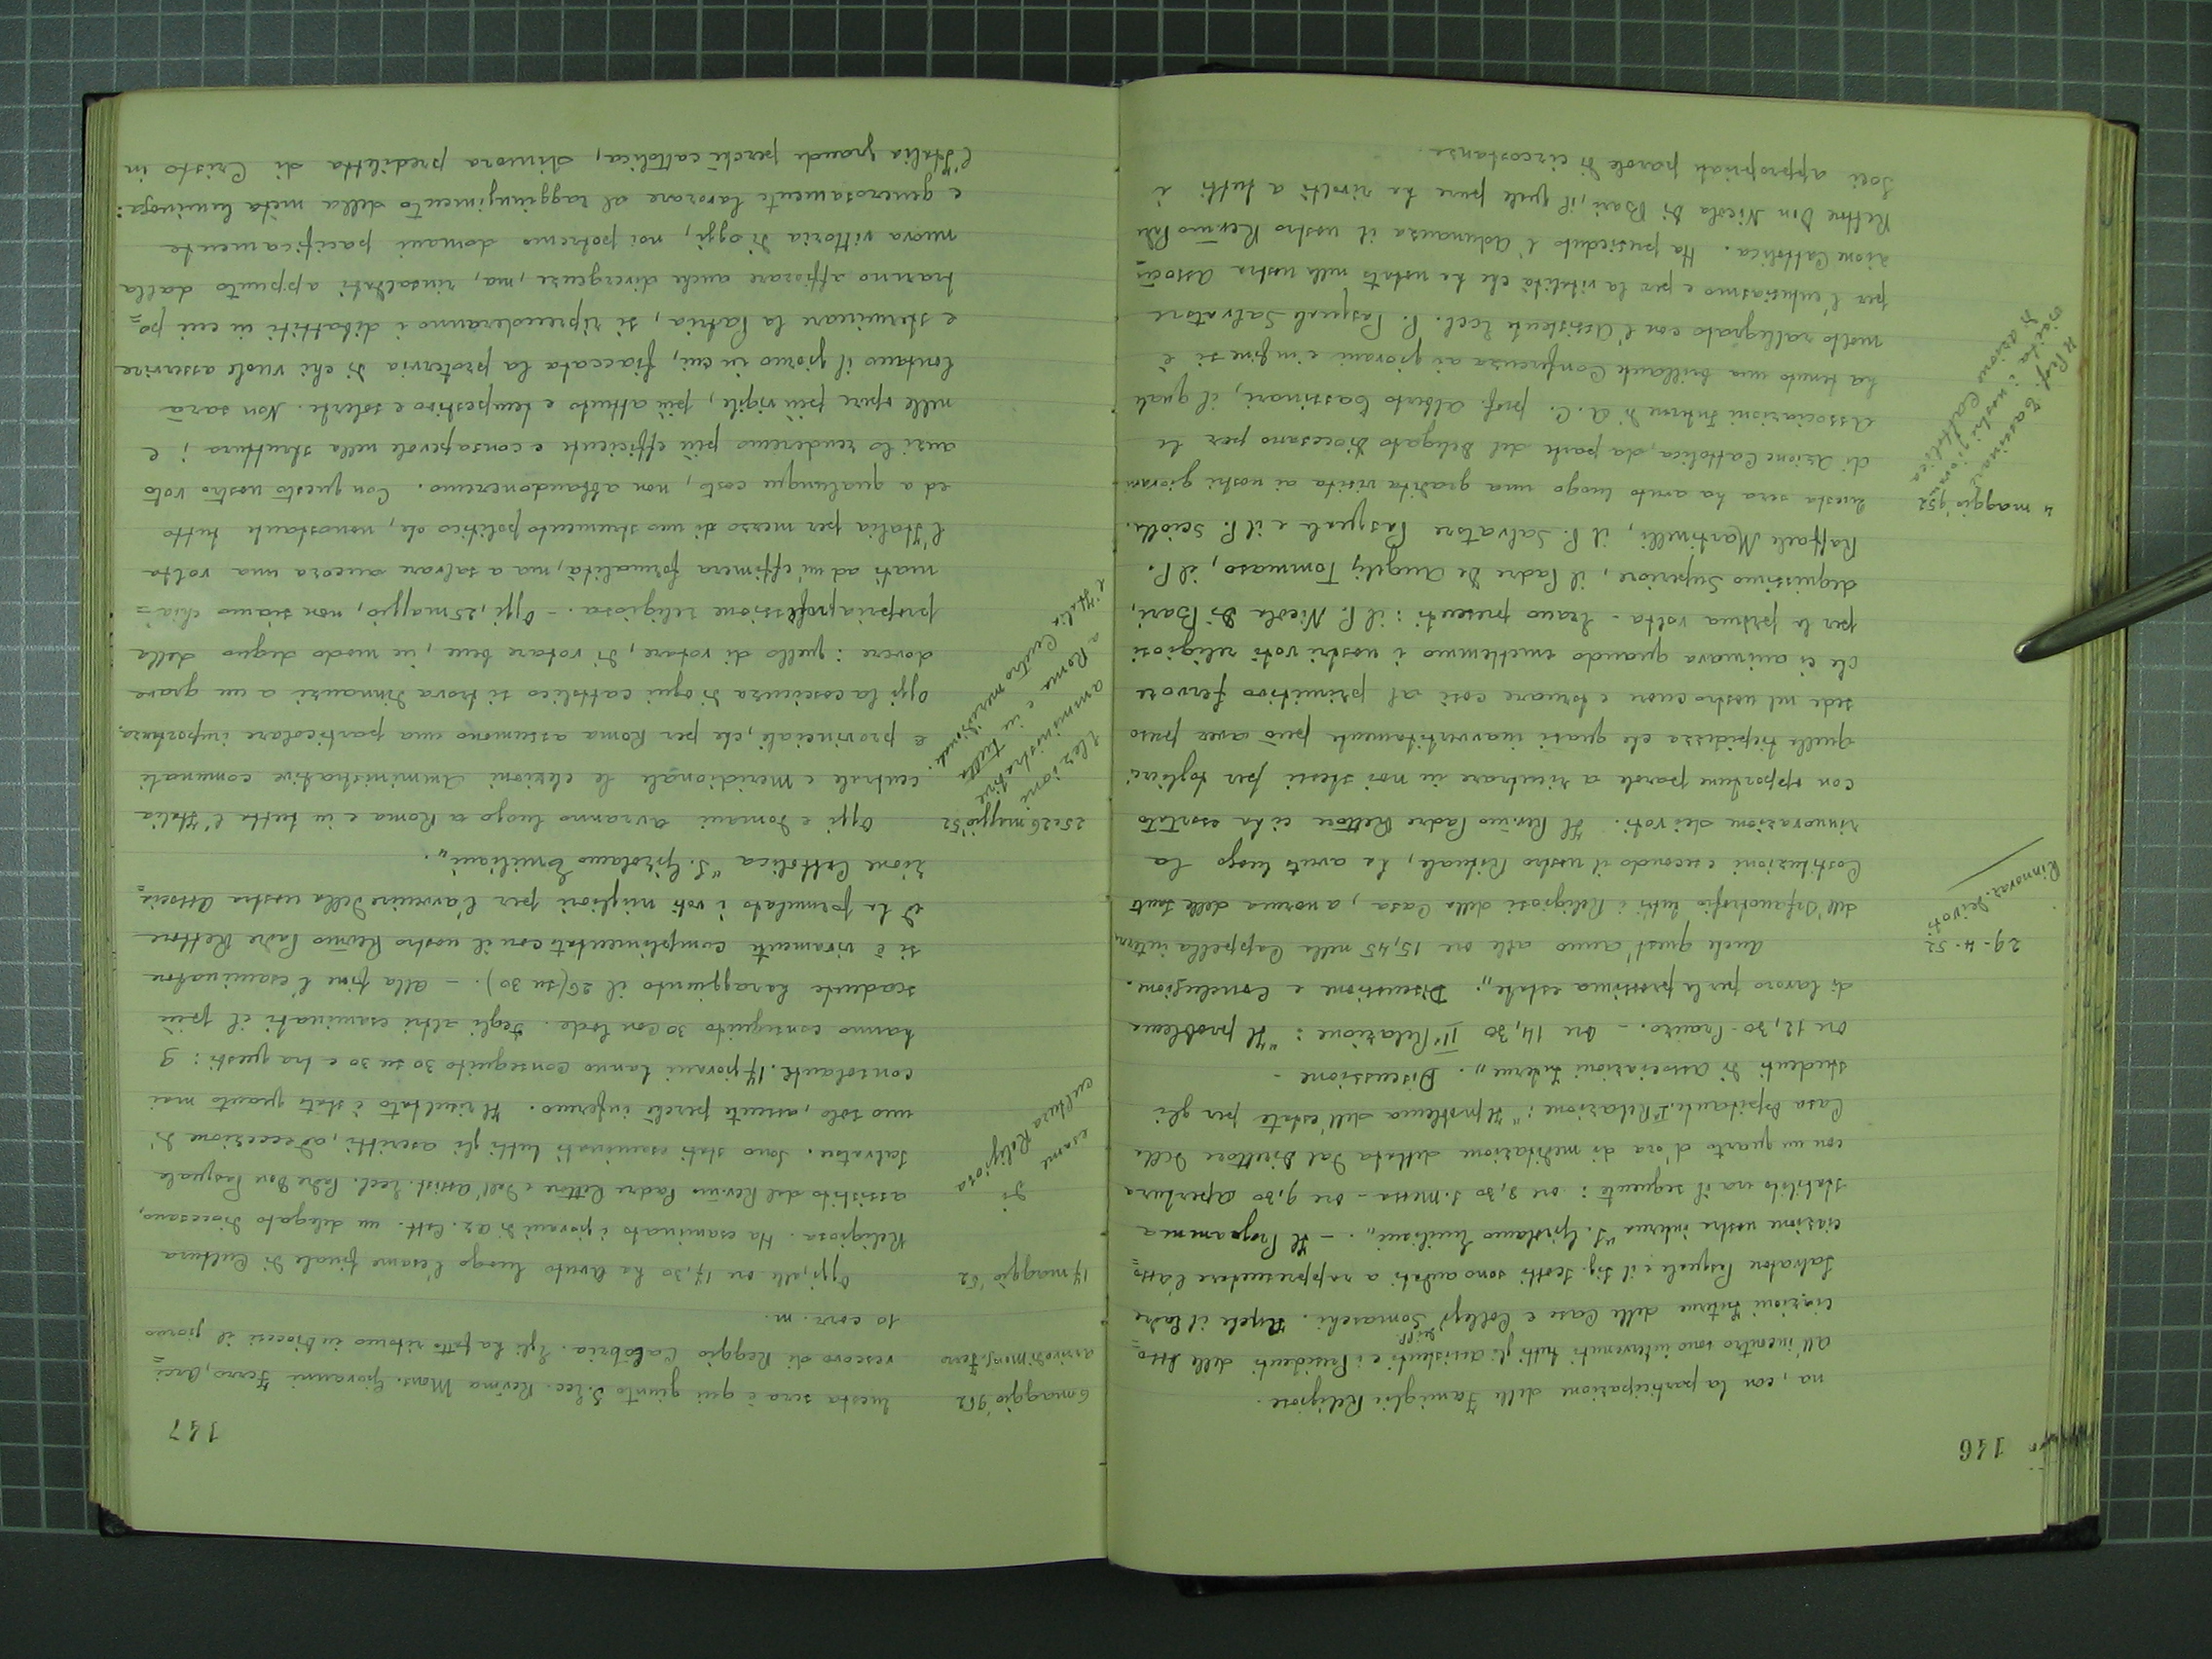 146
na, con la partecipazione delle Famiglie Religiose.
All'incontro sono intervenuti tutti gli Assistenti e i Presidenti delle Asso=
ciazioni Interne delle Case e Collegi Somaschi. il Padre
Salvatore Pasquale e il Sig. Scotti sono andati a rappresentare l'Asso=
ciazione nostra interna "S. Girolamo Emiliani„. - Il Programma
stabilito era il seguente: ore 8,30 S. Messa - ore 9,30 apertura
con un quarto d'ora di meditazione dettata dal Direttore della
Casa Ospitante. Iª Relazione: "Il problema dell'estate per gli
studenti di Associazioni Interne„. Discussione -
ore 12,30 - Pranzo. - Ore 14,30 IIª Relazione: "Il problema
di lavoro per la prossima estate„; Discussione e Conclusioni.
29-4-52
Rinnovaz. dei voti
Anche quest'anno alle ore 15,45 nella Cappella interna
dell'Orfanotrofio tutti i Religiosi della Casa, a norma delle Sante
Costituzioni e secondo il nostro Rituale, ha avuto luogo la
rinnovazione dei voti. Il Rev.mo Padre Rettore ci ha esortato
con opportune parole a rientrare in noi stessi per togliere
quella tiepidezza che quasi inavvertitamente può aver preso
sede nel nostro cuore e tornare così al primitivo fervore
che ci animava quando emettemmo i nostri voti religiosi
per la prima volta - Erano presenti: il P. Nicola Di Bari,
degnissimo Superiore, il Padre De Angelis Tommaso, il P.
Raffaele Martinelli, il P. Salvatore Pasquale e il P. Sciolla.
4 maggio '952
Il Prof. Cassinari
visita i nostri giovani
di Azione Cattolica
Questa sera ha avuto luogo una gradita visita ai nostri giovani
di Azione Cattolica, da parte del Delegato Diocesano per le
Associazioni Interne di A. C. prof. Alberto Cassinari, il quale
ha tenuto una brillante Conferenza ai giovani e infine si è
molto rallegrato con l'Assistente Eccl. P. Pasquale Salvatore
per l'entusiasmo e per la vitalità che ha notato nella nostra Associa=
zione Cattolica. Ha presieduto l'Adunanza il nostro Rev.mo Padre
Rettore Don Nicola Di Bari, il quale pure ha rivolto a tutti i
Soci appropriate parole di circostanza.
147
6 maggio '952
arrivo di Mons. Ferro
Questa sera è qui giunto S. Ecc. Rev.ma Mons. Giovanni Ferro, Arci=
vescovo di Reggio Calabria. Egli ha fatto ritorno in Diocesi il giorno
10 corr. m.
17 maggio '52
esame di
cultura Religiosa
Oggi, alle ore 17,30 ha avuto luogo l'esame finale di Cultura
Religiosa. Ha esaminato i giovani di Az. Catt. un delegato Diocesano,
assistito dal Rev.mo Padre Rettore e dall'Assist. Eccl. Padre Don Pasquale
Salvatore. Sono stati esaminati tutti gli ascritti, ad eccezione di
uno solo, assente perchè infermo. Il risultato è stato quanto mai
consolante. 17 giovani hanno conseguito 30 su 30 e tra questi: 9
hanno conseguito 30 con lode. Degli altri esaminati il più
scadente ha raggiunto il 26 (su 30). - Alla fine l'esaminatore
si è vivamente complimentato con il nostro Rev.mo Padre Rettore
ed ha formulato i voti migliori per l'avvenire della nostra Associa=
zione Cattolica "S. Girolamo Emiliani„.
25 e 26 maggio '52
Elezioni
amministrative
a Roma e in tutta
l'Italia Centro meridionale.
Oggi e domani avranno luogo a Roma e in tutta l'Italia
centrale e meridionale le elezioni amministrative comunali
e provinciali, che per Roma assumono una particolare importanza.
Oggi la coscienza di ogni cattolico si trova dinnanzi a un grave
dovere: quello di votare, di votare bene, in modo degno della
propria professione religiosa. - Oggi, 25 maggio, non siamo chia=
mati ad un'effimera formalità, ma a salvare ancora una volta
l'Italia per mezzo di uno strumento politico che, nonostante tutto
ed a qualunque costo, non abbandoneremo. Con questo nostro voto
anzi lo renderemo più efficiente e consapevole nella struttura; e
nelle opere più vigile, più attento e tempestivo e solerte. Non sarà
lontano il giorno in cui, fiaccata la protervia di chi vuole asservire
e sterminare la Patria, si riprenderanno i dibattiti in cui po=
tranno affiorare anche divergenze, ma, rinsaldati appunto dalla
nuova vittoria di oggi, noi potremo domani pacificamente
e generosamente lavorare al raggiungimento della mèta luminosa:
l'Italia grande perchè cattolica, dimora prediletta di Cristo in